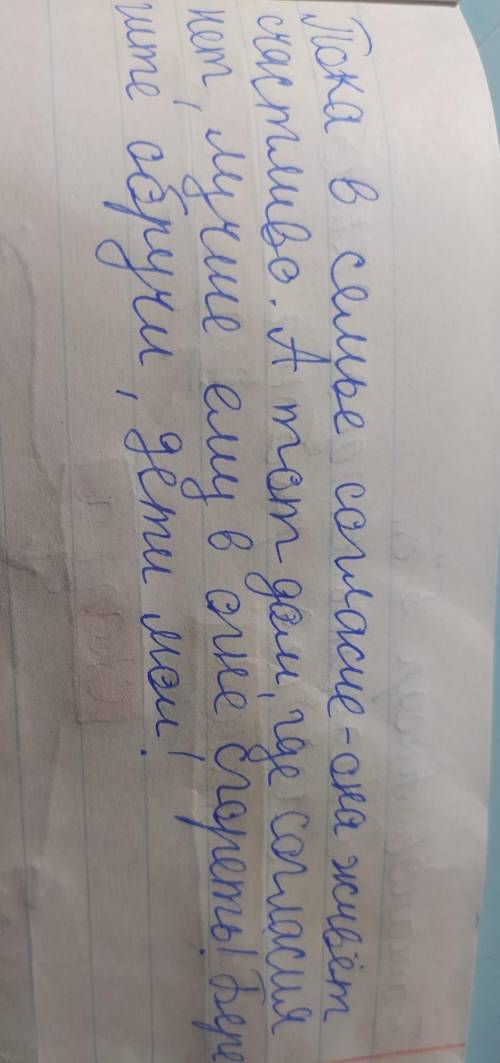 Пока в семье согласие - она живёт
счастливо. А тот дом, где согласия
нет, лучше ему в огне сгореть! Бере
гите обручи, дети мои!